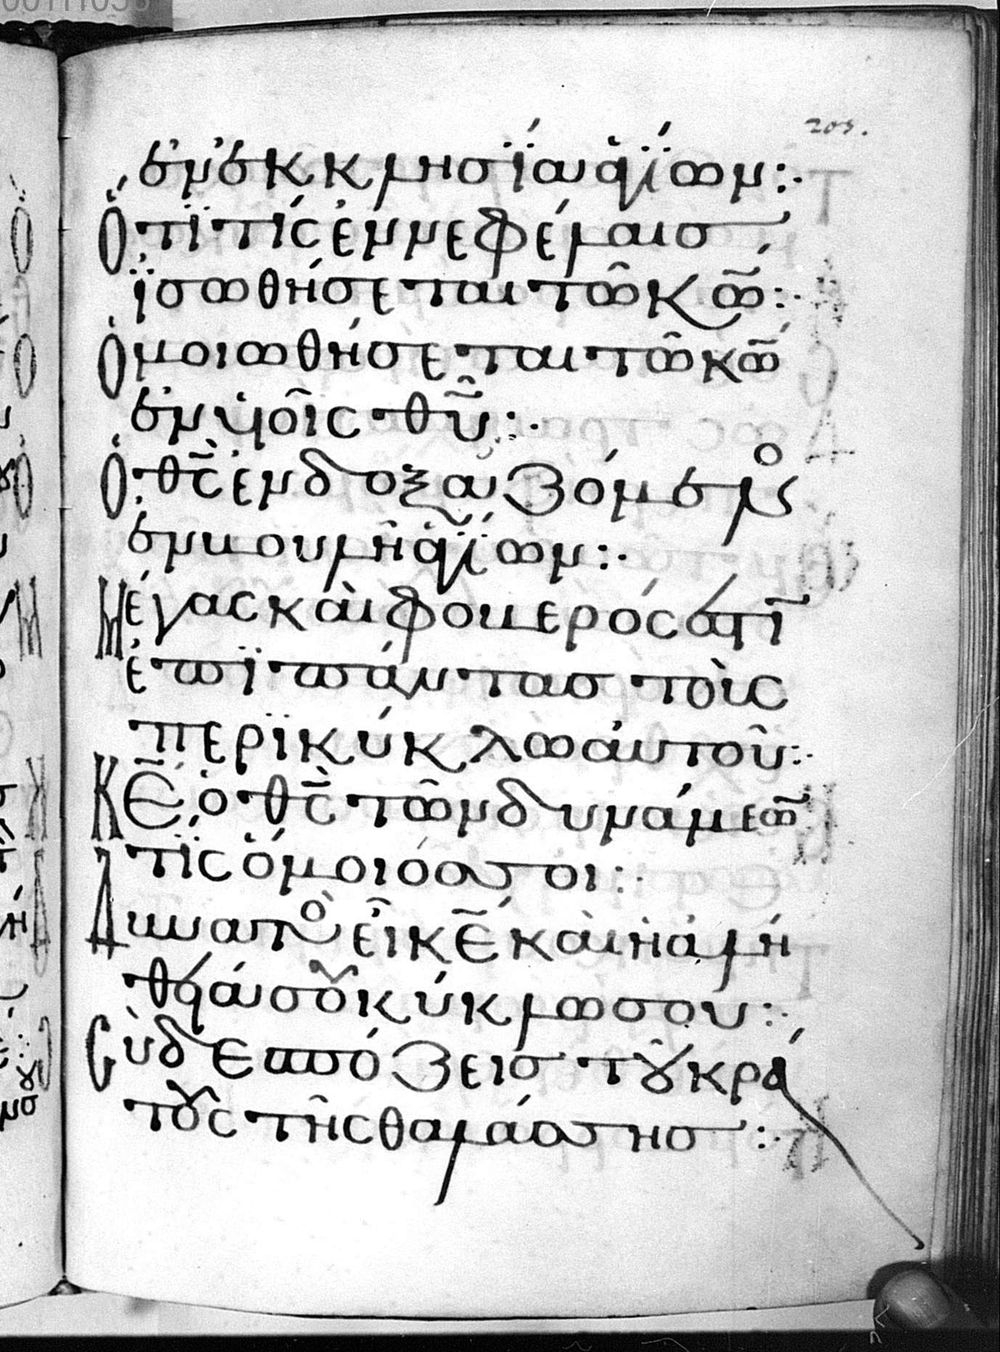 203.
ἐν ἐκκλησΐα ἁγΐων:·
Ὅτΐ τίς ἐν νεφέλαισ
ϊσωθήσεται τῶ κω̅:·
Ὁμοιωθήσεται τῶ κω̅
ἐν υἱοῖς θυ̅:·
Ὁ θς̅ ἐνδοξαζόμενος
ἐν βουλῆ ἁγΐων:·
Μέγας καὶ φοβερός ἐστϊ
ἐπϊ πάντασ τοὺς
περϊκύκλω αὐτοῦ:·
Κε̅ ὁ θς̅ τῶν δυνάμεω̅
τΐς ὅμοιόσ σοι:·
Δυνατὸσ εἶ κε̅ καὶ ἡ ἀλή
θειά σου κύκλω σου:·
Σὺ δεσπόζεισ τοῦ κρά
τους τῆς θαλάσσησ:·